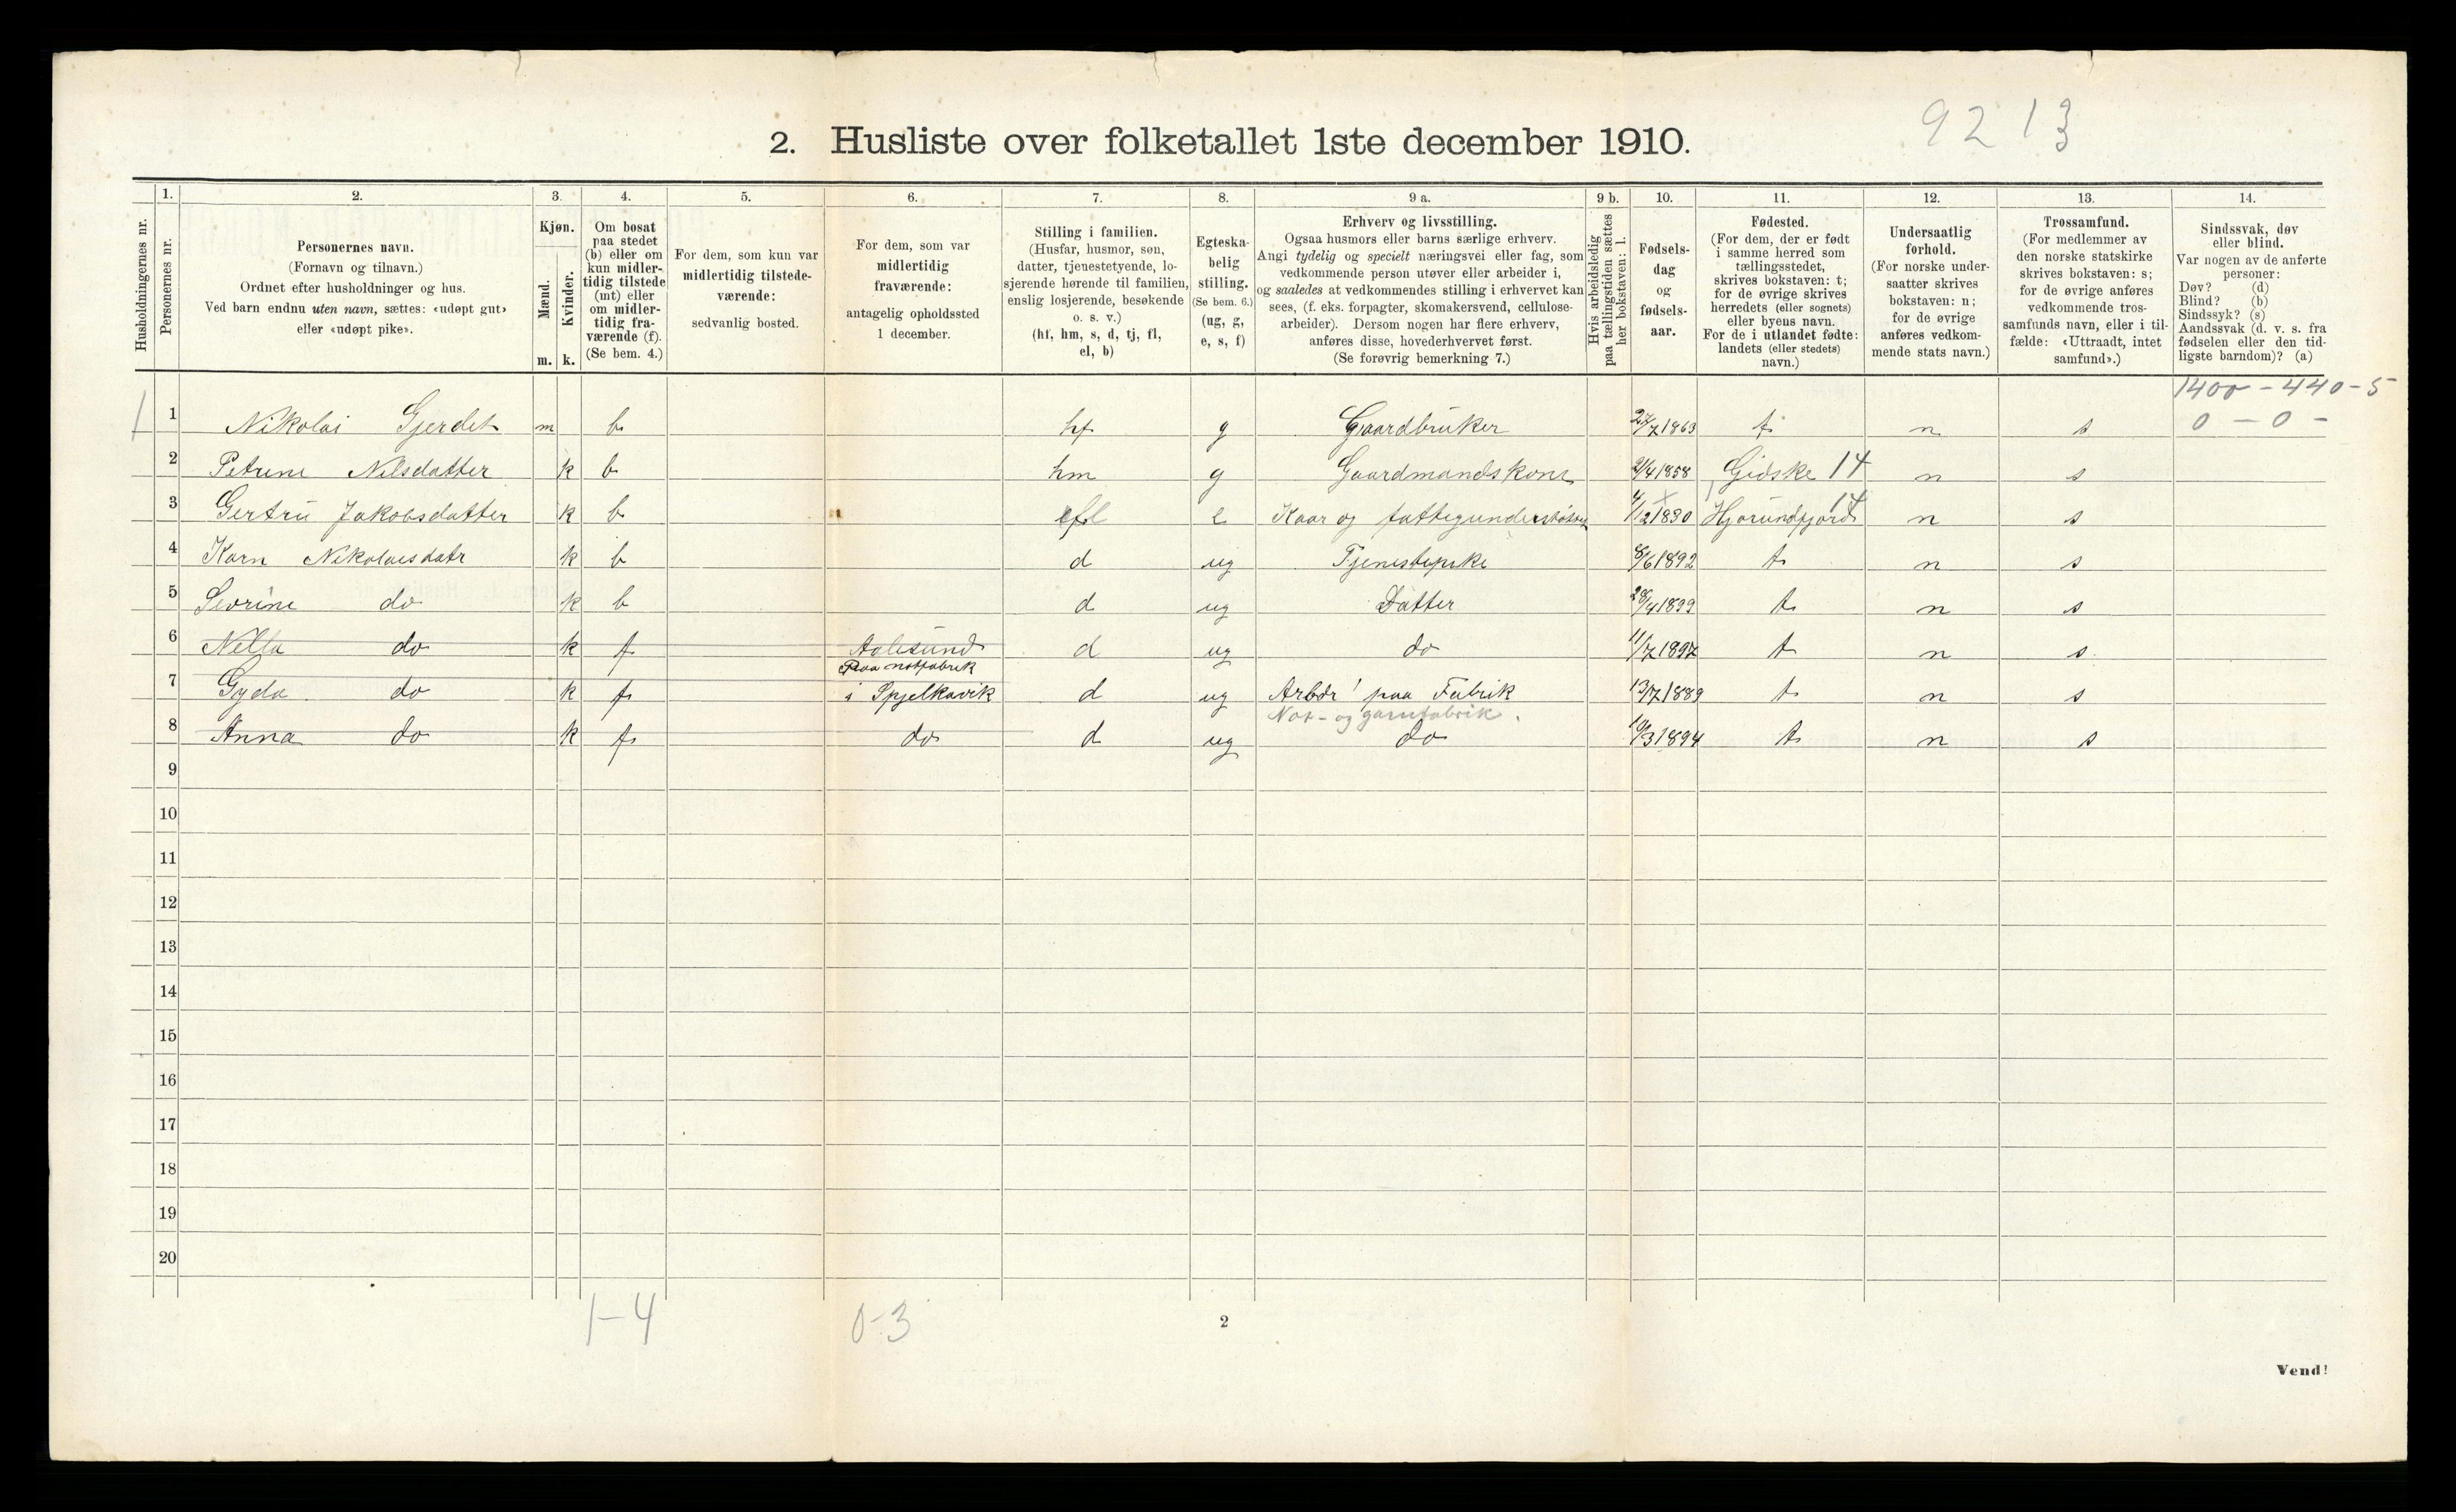 92 13
2. Husliste over folketallet 1ste december 1910.
Husholdningernes nr.
1. Personernes nr.
2. Personernes navn. (Fornavn og tilnavn.) Ordnet efter husholdninger og hus. Ved barn endnu uten navn, sættes: «udøpt gut» eller «udøpt pike».
3. Kjøn. Mænd. m. Kvinder. k.
4. Om bosat paa stedet (b) eller om kun midlertidig tilstede (mt) eller om midlertidig fraværende (f). (Se bem. 4.)
5. For dem, som kun var midlertidig tilstedeværende: sedvanlig bosted.
6. For dem, som var midlertidig fraværende: antagelig opholdssted 1 december.
7. Stilling i familien. (Husfar, husmor, søn, datter, tjenestetyende, losjerende hørende til familien, enslig losjerende, besøkende o. s. v.) (hf, hm, s, d, tj, fl, el, b)
8. Egteskabelig stilling. (Se bem. 6.) (ug, g, e, s, f)
9 a. Erhverv og livsstilling. Ogsaa husmors eller barns særlige erhverv. Angi tydelig og specielt næringsvei eller fag, som vedkommende person utøver eller arbeider i, og saaledes at vedkommendes stilling i erhvervet kan sees, (f. eks. forpagter, skomakersvend, cellulosearbeider). Dersom nogen har flere erhverv, anføres disse, hovederhvervet først. (Se forøvrig bemerkning 7.)
9 b. Hvis arbeidsledig paa tællingstiden sættes her bokstaven: l.
10. Fødselsdag og fødselsaar.
11. Fødested. (For dem, der er født i samme herred som tællingsstedet, skrives bokstaven: t; for de øvrige skrives herredets (eller sognets) eller byens navn. For de i utlandet fødte: landets (eller stedets) navn.)
12. Undersaatlig forhold. (For norske undersaatter skrives bokstaven: n; for de øvrige anføres vedkommende stats navn.)
13. Trossamfund. (For medlemmer av den norske statskirke skrives bokstaven: s; for de øvrige anføres vedkommende trossamfunds navn, eller i tilfælde: «Uttraadt, intet samfund».)
14. Sindssvak, døv eller blind. Var nogen av de anførte personer: Døv? (d) Blind? (b) Sindssyk? (s) Aandssvak (d. v. s. fra fødselen eller den tidligste barndom)? (a)
1400 - 440 - 5
1 1 Nikolai Gjerdet m b hf g Gaardbruker 27/7 1863 t n s 0 - 0 -
2 Petrine Nilsdatter k b hm g Gaardmandskone 2/4 1858 Gidske 14 n s
3 Gertru Jakobsdatter k b fl e Kaar og fattigunderstøttet 4/12 1830 Hjørundfjord 14 n s
4 Karn Nikolaisdatr k b d ug Tjenestepike 8/6 1892 t n s
5 Sevrine do k b d ug Datter 28/4 1899 t n s
6 Nella do k f Aalesund d ug do 11/7 1897 t n s
Paa notfabrik
7 Gyda do k f i Spjelkavik d ug Arbdr paa Fabrik 13/7 1889 t n s
Not- og garnfabrik.
8 Anna do k f do d ug do 10/3 1894 t n s
9
10
11
12
13
14
15
16
17
18
19
20
1-4 0-3
2
Vend!